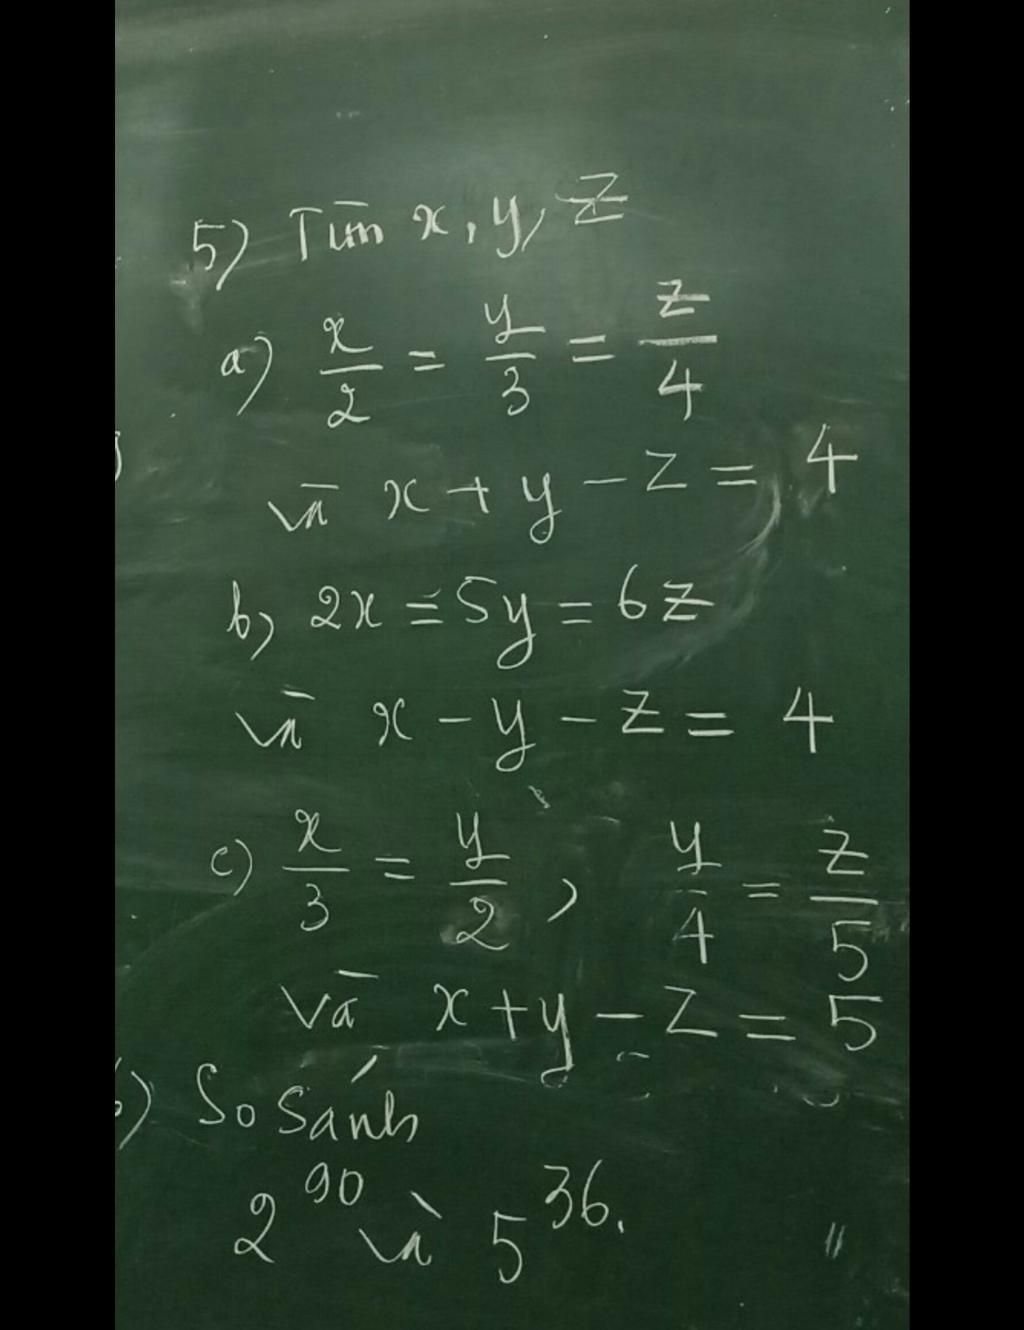 5) Tìm x, y, z
a) x/2 = y/3 = z/4
và x + y - z = 4
b, 2x = 5y = 6z
và x - y - z = 4
c) x/3 = y/2 , y/4 = z/5
và x + y - z = 5
6) So sánh
2^90 và 5^36.